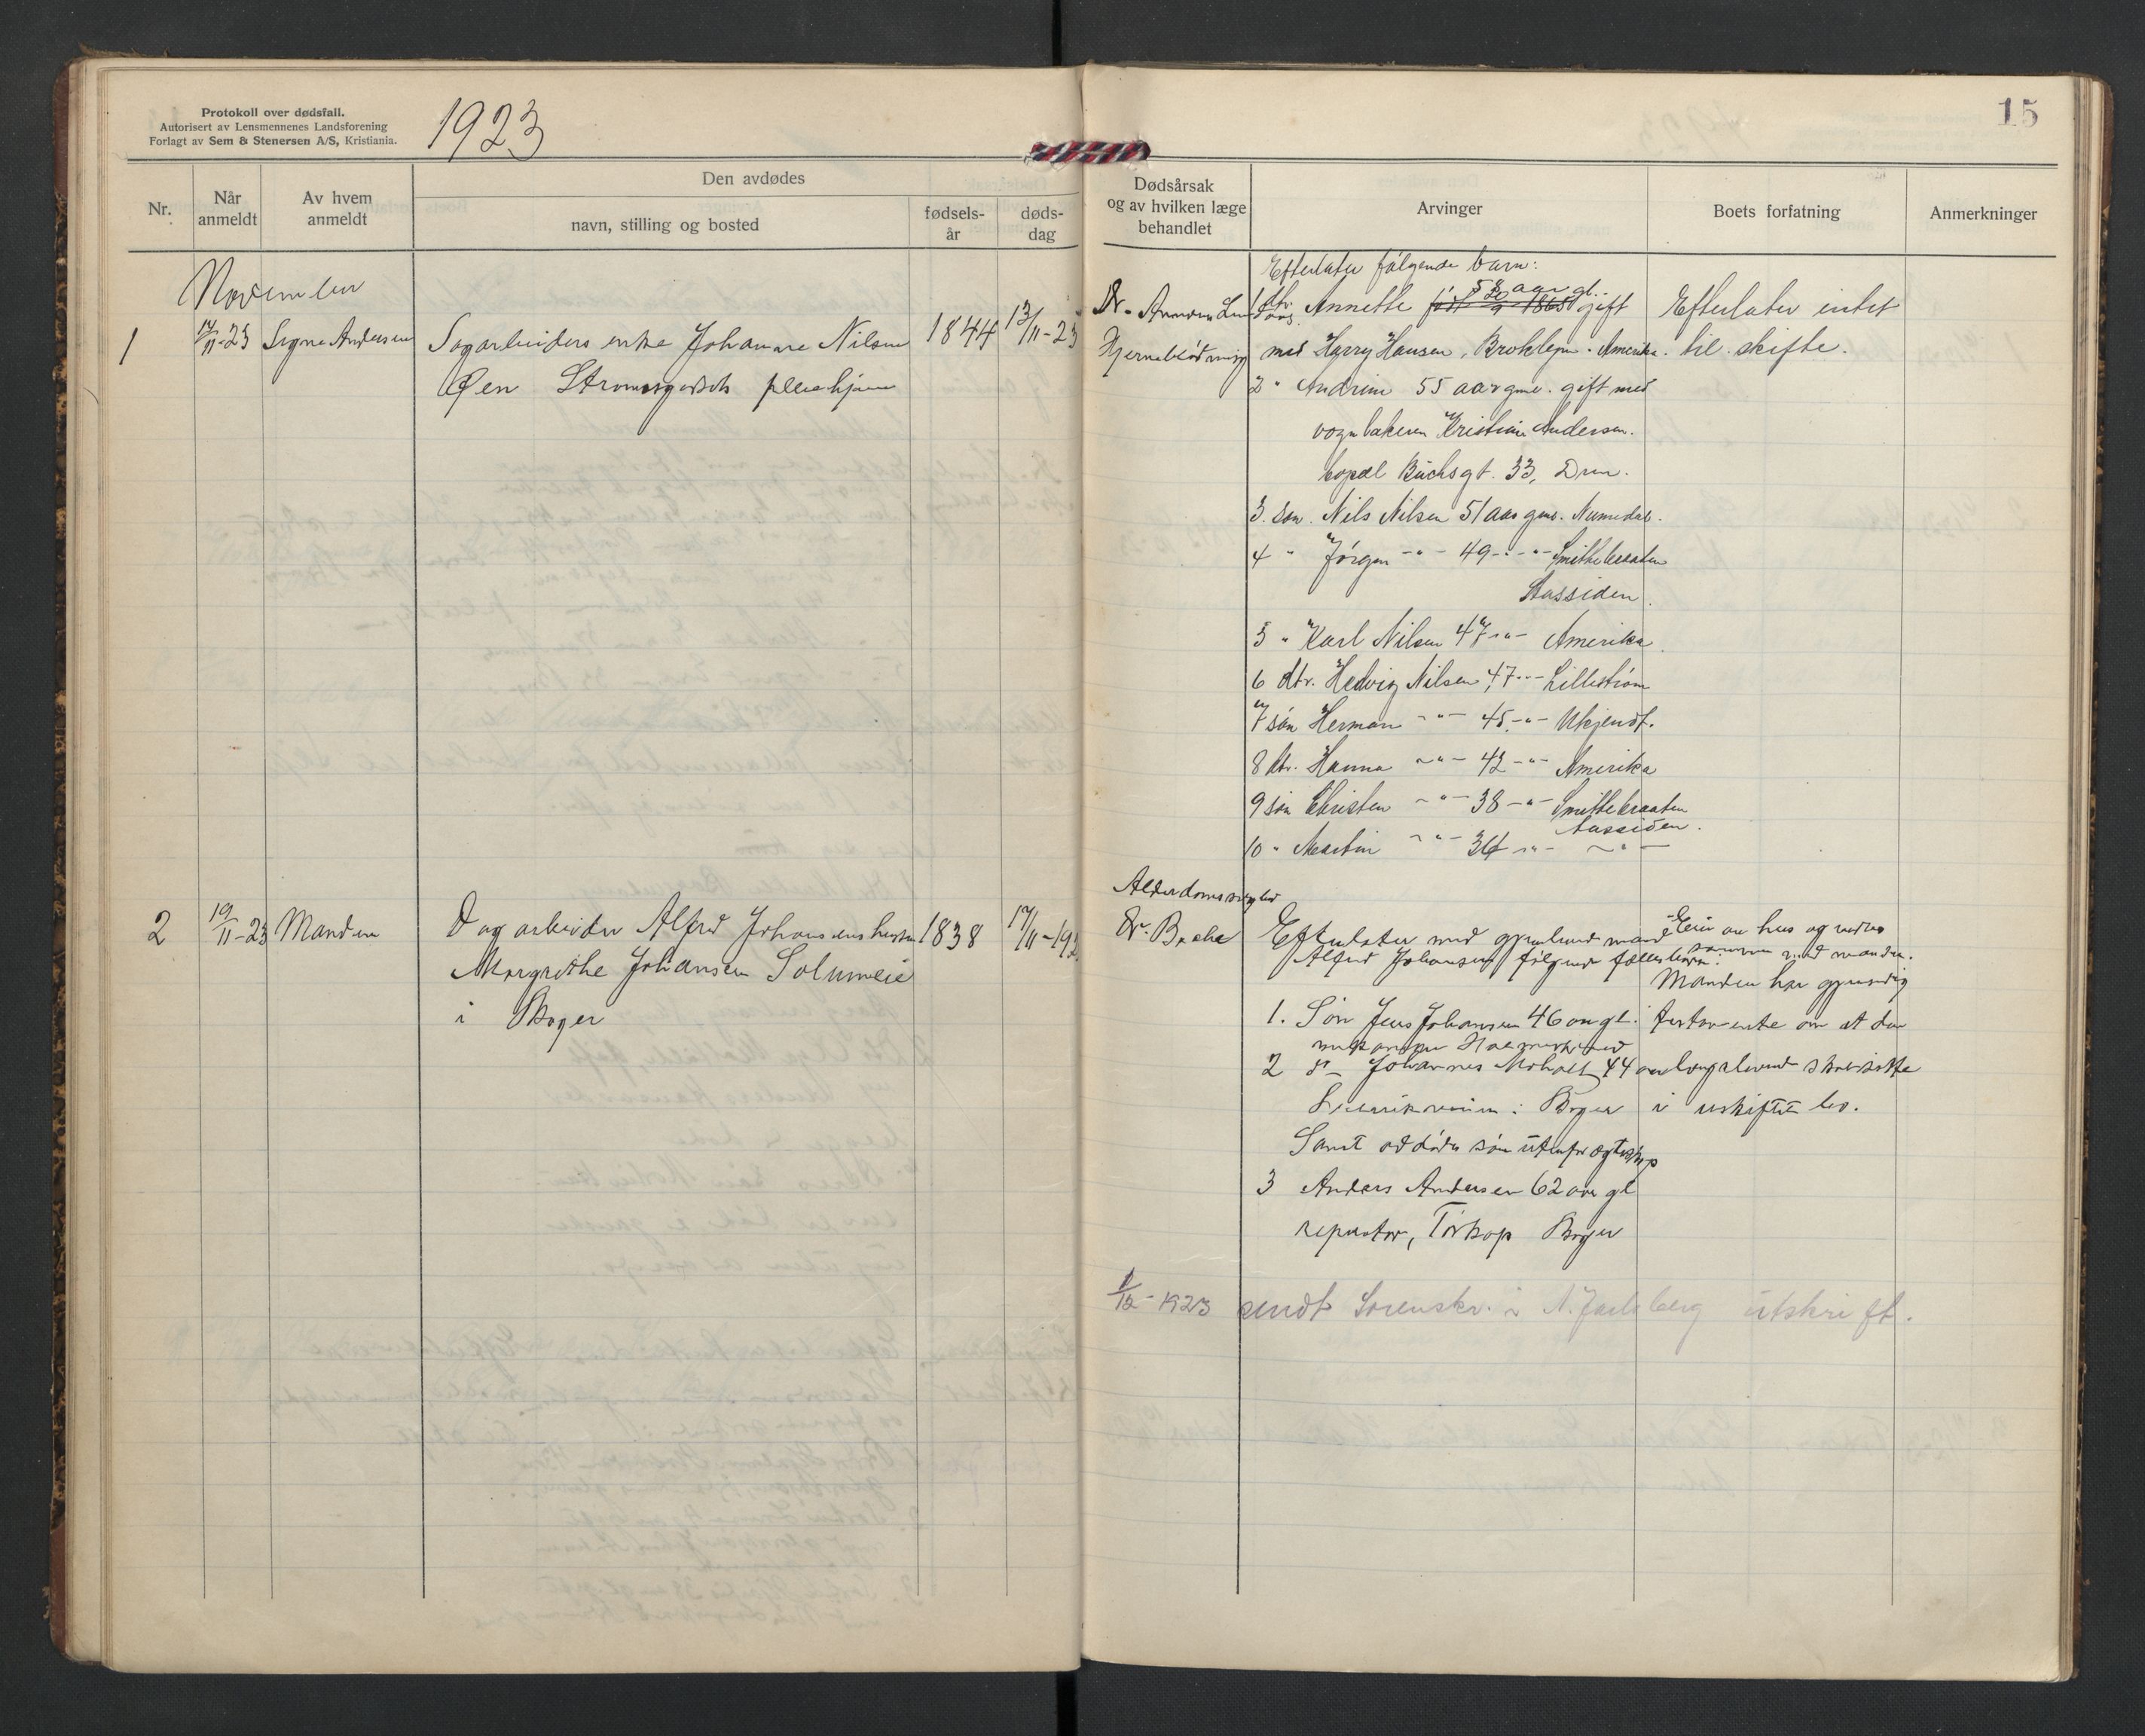 Protokoll over dødsfall.
Autorisert av Lensmennenes Landsforening
Forlagt av Sem & Stenersen A/S, Kristiania.
1923
15
Nr.
Når anmeldt
Av hvem anmeldt
Den avdødes
navn, stilling og bosted
fødsels-år
døds-dag
Dødsårsak og av hvilken læge behandlet
Arvinger
Boets forfatning
Anmerkninger
November
1
14/11-23
Signe Andersen
Sagarbeiders enke Johanne Nilsen
Øen Strømsgodsets pleiehjem
1844
13/11-23
Dr.
Hjerneblødning
Efterlater følgende barn:
58 aar gl.
1 dtr. Annette født 20/9 1865 gift
med Harry Hansen, Broklyn. Amerika.
2 " Andrine 55 aar gml. gift med
Kristian Andersen.
bopæl Buchsgt. 33, Drm.
3. søn. Nils Nilsen 51 aar gml. Numedal.
4 " Jørgen -"- 49 -"- Smittebraaten
Aassiden.
5 " Karl Nilsen 47 -"- Amerika.
6 dtr. Hedvig Nilsen 47 -"- Lillestrøm
7 søn Herman -"- 45 -"- Ukjendt.
8 dtr. Hanna -"- 42 -"- Amerika
9 søn Christen -"- 38 -"- Smittebraaten
Aassiden.
10 " Martin -"- 36 -"- -"-
Efterlater intet
til skifte.
2
19/11-23
Manden
Dagarbeider Alfred Johansens hustru
Margrethe Johansen Solumeie
i Skoger
1838
17/11-192
Alderdomssvakhet
Dr. Bache
Efterlater med gjenlevende mand
Alfred Johansen følgende fællesbarn:
1. Søn Jens Johansen 46 aar gl.
2 Johannes Moholt 44 aar
i Skoger
Samt avdødes søn utenfor ægteskap
3 Anders Andersen 62 aar gl
repslager, Tørkop Skoger
Eier en hus og
sammen med manden.
Manden har gjensidig
testamente om at den
længstlevende skal sitte
i uskiftet bo.
1/12-1923 sendt Sorenskr. i N. Jarlsberg utskrift.